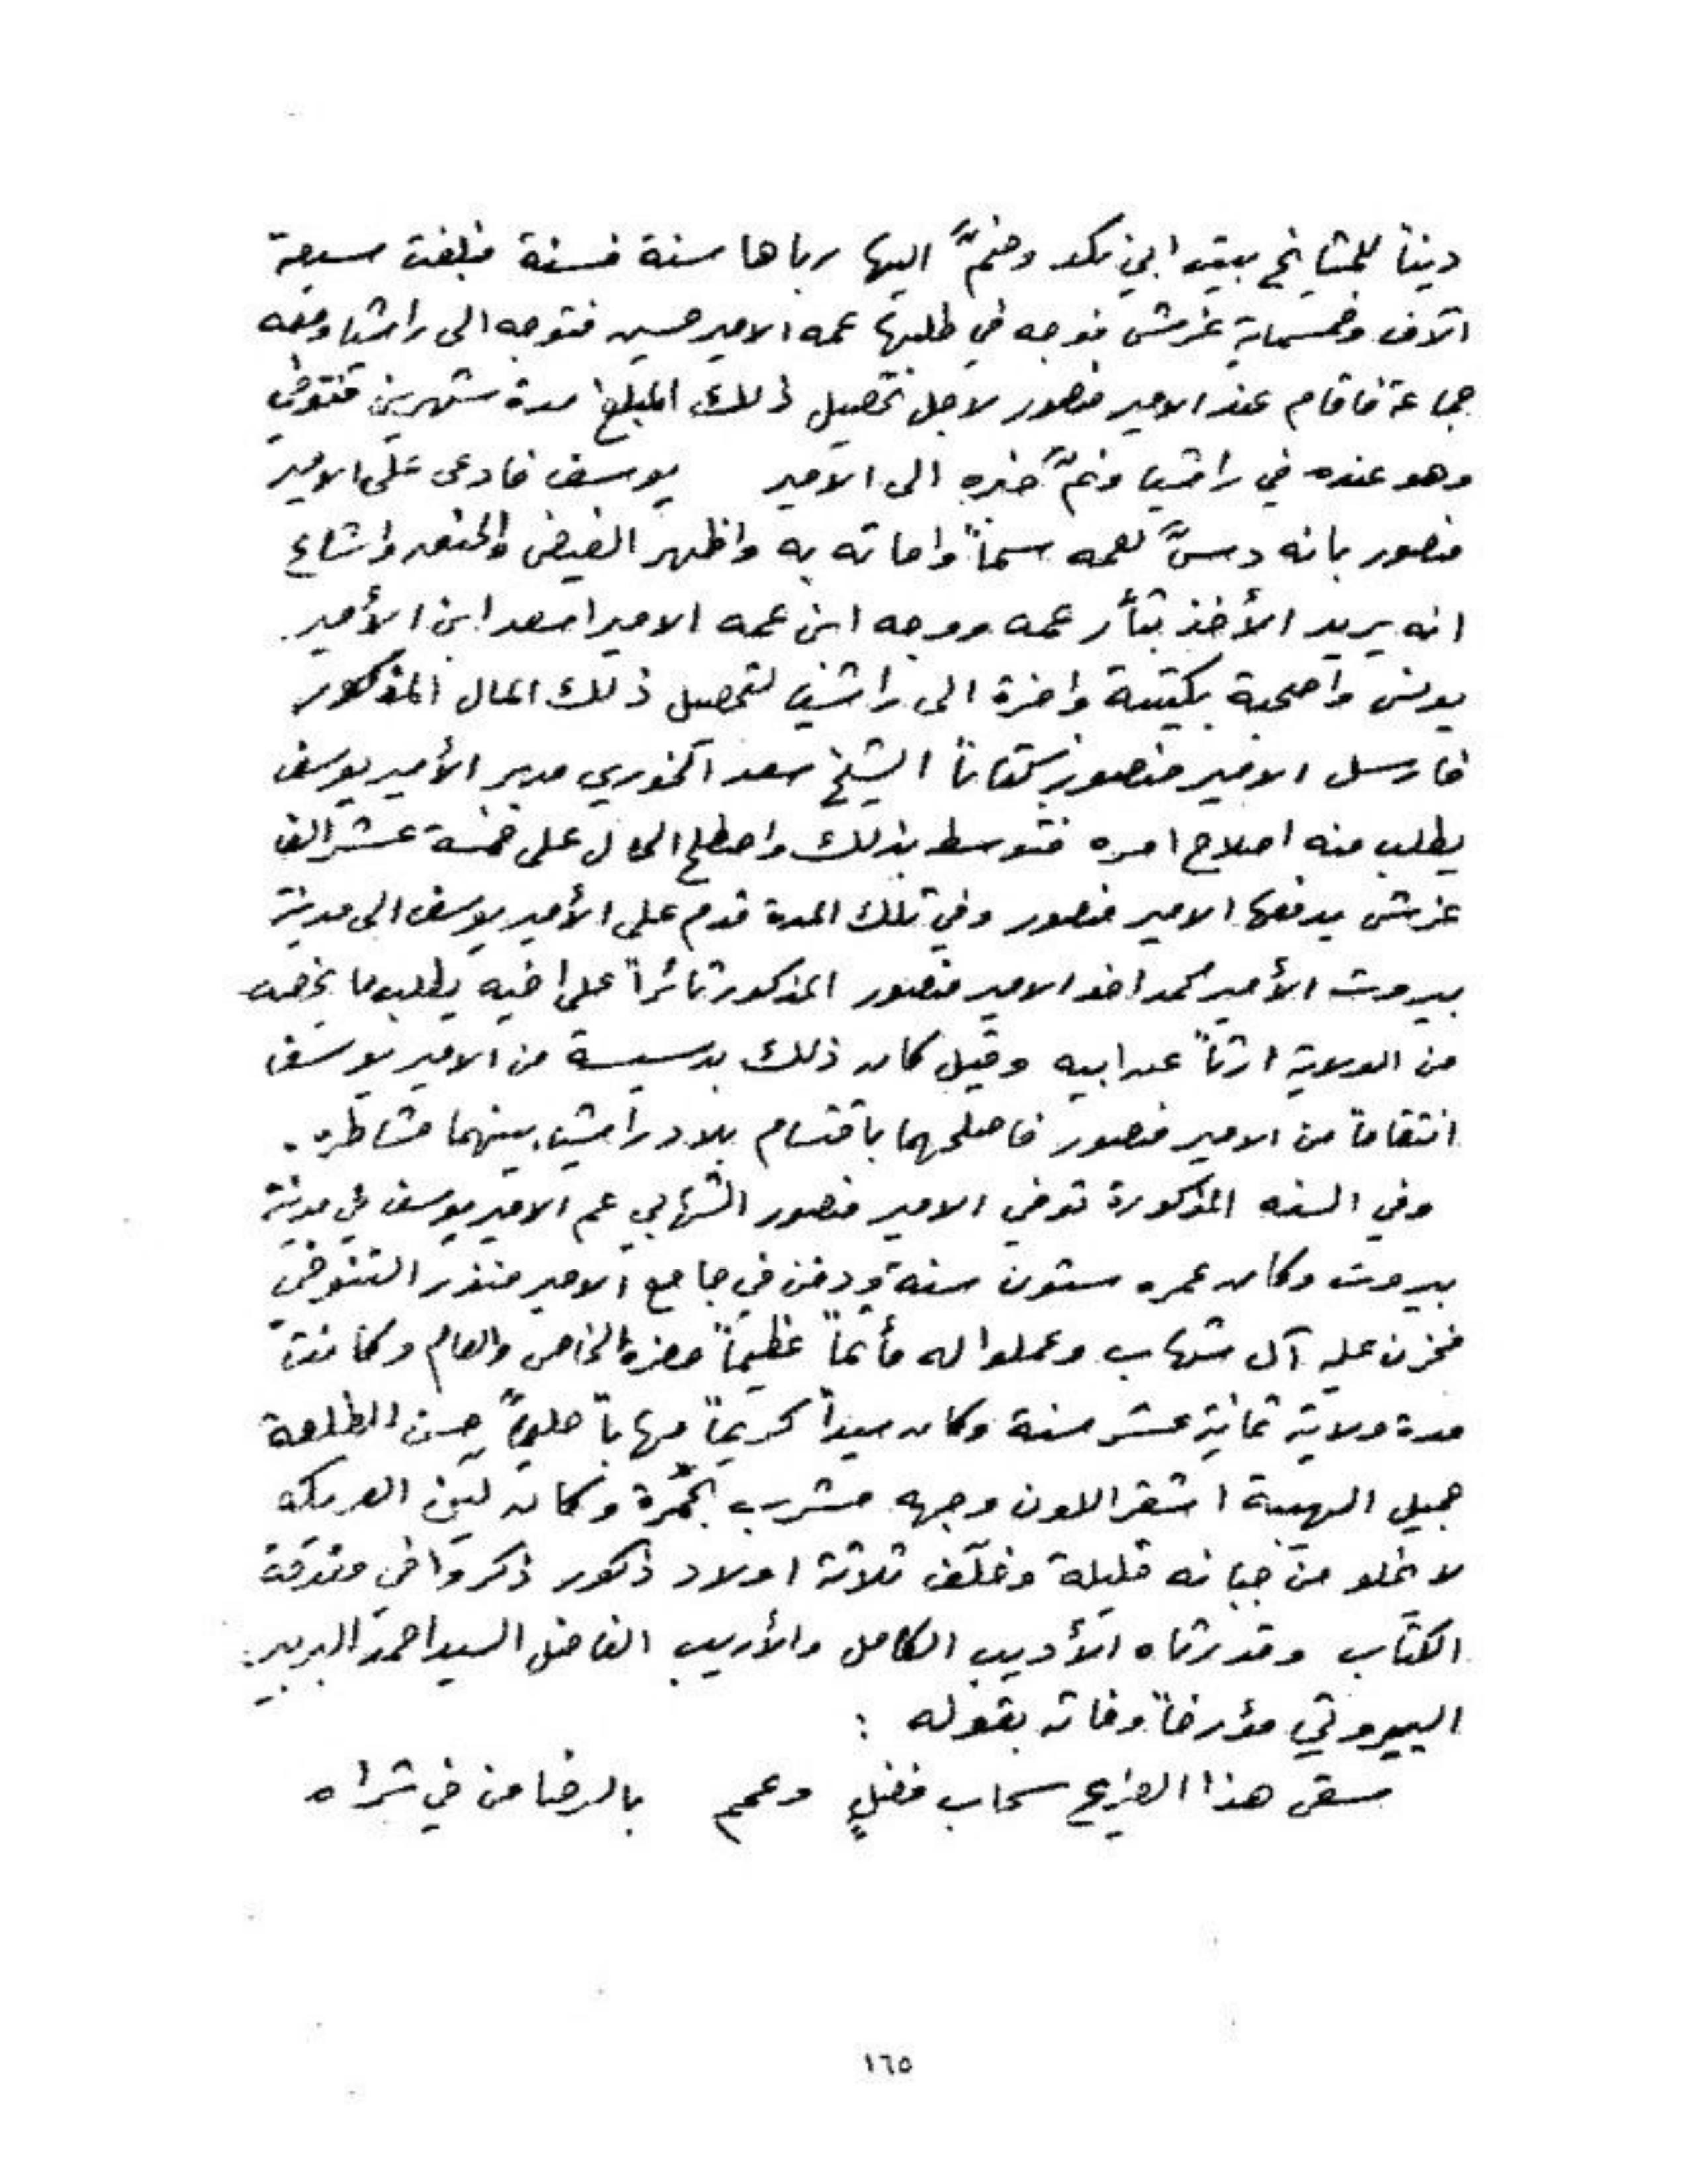 ديناً للمشايخ بيت ابي نكد وضمَّ اليها رباها سنة فسنة فبلغت سبعة
آلاف وخمسماية غرش فوجه في طلبها عمه الامير حسين فتوجه الى راشيا ومعه
جماعة فاقام عند الامير منصور لاجل تحصيل ذلك المبلغ مدة شهرين فتوفي
وهو عنده في راشيا ونمَّ خبره الى الامير يوسف فادعى على الامير
منصور بانه دسَّ لعمه سماً واماته به واظهر الغيض والحنق واشاع
انه يريد الأخذ بثأر عمه ووجه ابن عمه الامير اسعد ابن الأمير
يونس واصحبة بكتيبة وافرة الى راشيا لتحصيل ذلك المال المذكور
فارسل الامير منصور كتاباً الشيخ سعد الخوري مدبر الأمير يوسف
يطلب منه اصلاح امره فتوسط بذلك واصطلح الحال على خمسة عشر الف
غرش يدفعها الامير منصور وفي تلك المدة قدم على الأمير يوسف الى مدينة
بيروت الأمير محمد اخو الامير منصور المذكور ثائراً على اخيه يطلب ما يخصه
من الولاية ارثاً عن ابيه وقيل كان ذلك بدسيسة من الامير يوسف
انتقاماً من الامير منصور فاصلحهما باقتسام بلاد راشيا بينهما مشاطره.
وفي السنه المذكورة توفي الامير منصور الشهابي عم الامير يوسف في مدينة
بيروت وكان عمره ستون سنة ودفن في جامع الامير منذر التنوخي
فحزن عليه آل شهاب وعملوا له مأتماً عظيماً حضره الخاص والعام وكانت
مدة ولايته ثمانية عشر سنة وكان سيداً كريماً مهاباً حليماً حسن الطلعة
جميل الهيبة اشقر اللون وجهه مشرب بحُمرة وكان لين العريكه
لا يخلو من جبانه قليلة وخلّف ثلاثة اولاد ذكور ذكروا في مقدمة
الكتاب وقد رثاه الأديب الكامل والأريب الفاضل السيد احمد البربير
البيروتي مؤرخاً وفاته بقوله :
سقى هذا الضريح سحاب فضلٍ وعمم بالرضا من في ثراه
١٦٥